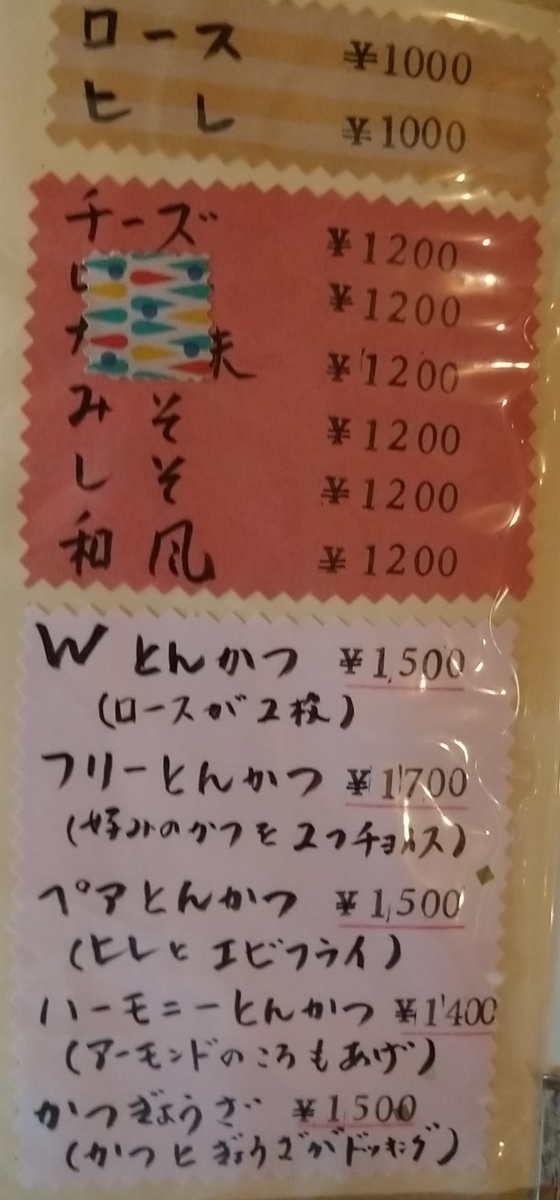 ロース ¥1000
ヒレ ¥1000
チーズ ¥1200
¥1200
¥1200
みそ ¥1200
しそ ¥1200
和風 ¥1200
Wとんかつ ¥1,500
(ロースが2枚)
フリーとんかつ ¥1,700
(好みのかつを2つチョイス)
ペアとんかつ ¥1,500
(ヒレとエビフライ)
ハーモニーとんかつ ¥1,400
(アーモンドのころもあげ)
かつぎょうざ ¥1,500
(かつとぎょうざがドッキング)